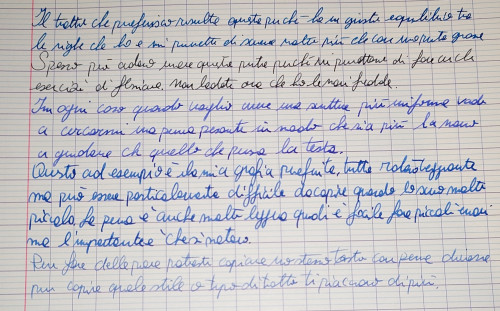 Il tratto che preferisco risulta questo perché ha un giusto equilibrio tra
le righe che ho e mi permette di scrivere molto più che con una punta grossa
Spero più adoro usare queste punte perché mi permettono di fare anche
esercizi di flessione, non badate ora che ho le mani fredde.
In ogni caso quando voglio avere una scrittura più uniforme vado
a cercarmi una penna pesante in modo che sia più la mano
a guidare che quello che pensa la testa.
Questa ad esempio è la mia grafia preferita, tutta rotondeggiante
ma può essere particolarmente difficile da capire quando la scrivo molto
piccola. La penna è anche molto leggera quindi è facile fare piccoli errori
ma l'importante è che si noti
Per fare delle prove potresti copiare lo stesso testo con penne diverse
per capire quale stile o tipo di tratto ti piacciono di più.